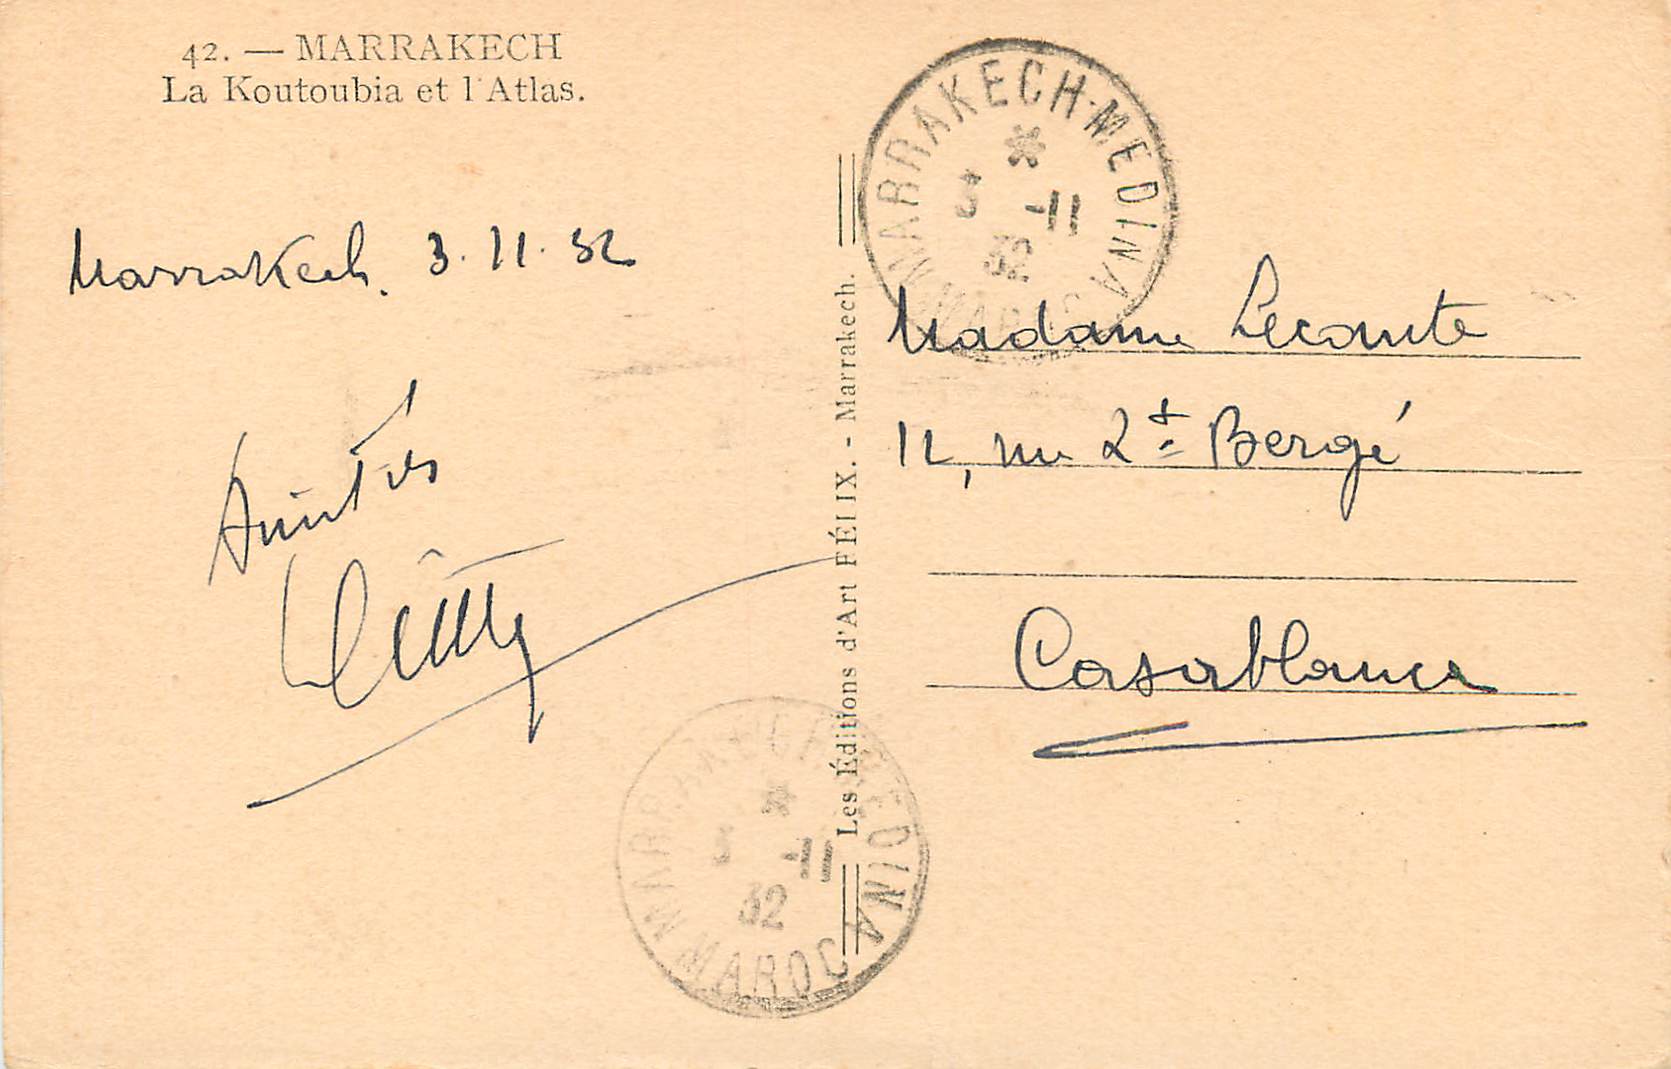 42. — MARRAKECH
La Koutoubia et l'Atlas.
Marrakech. 3.11.32
Amitiés
Les Éditions d'Art FÉLIX. - Marrakech.
MARRAKECH-MEDINA
*
3 -11
32
MAROC
Madame Lecomte
12, rue Lt Bergé
Casablanca
MARRAKECH-MEDINA
*
3 -11
32
MAROC